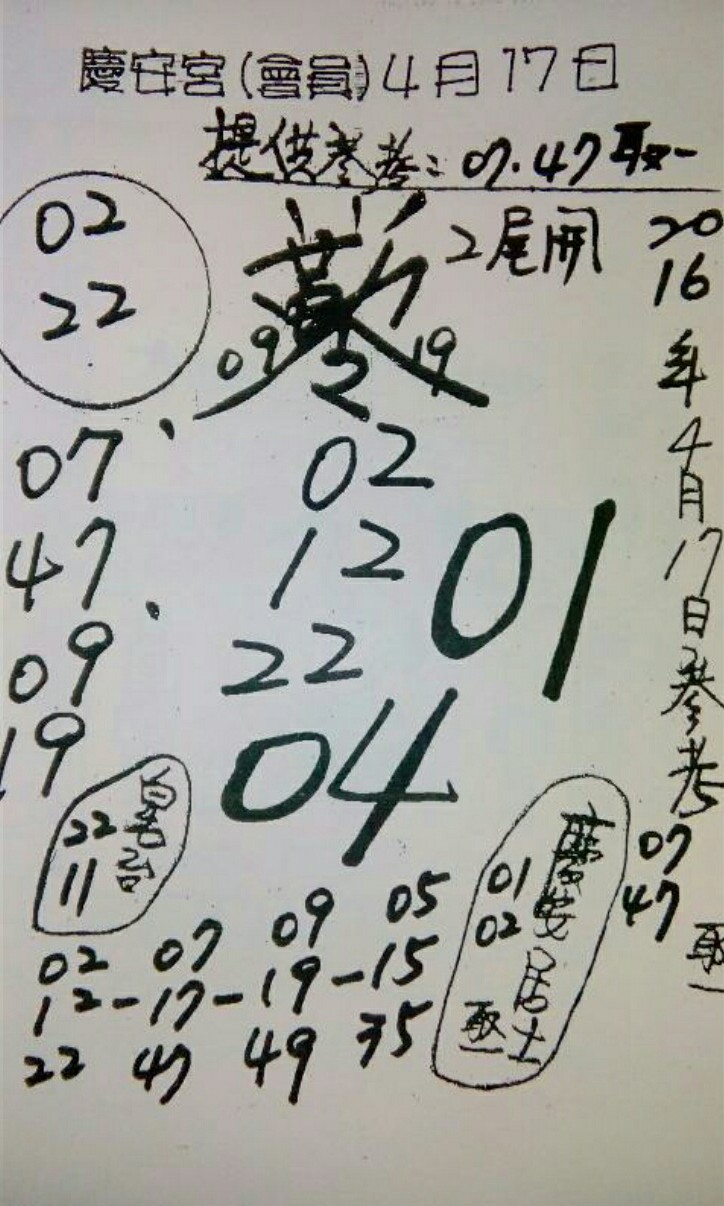 慶安宮(會員)4月17日
提供參考:07.47取一
02
22
2尾開
09 2 19
07
47
09
19
02
12
22
01
04
2016年4月17日參考
07
47
取一
22
11
慶安居士
01
02
取一
02 07 09 05
12-17-19-15
22 47 49 35